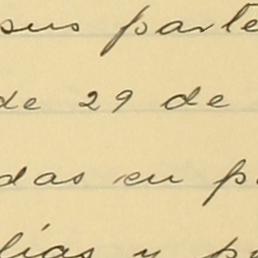 sus parte
de 29 de
das en p
lias y p